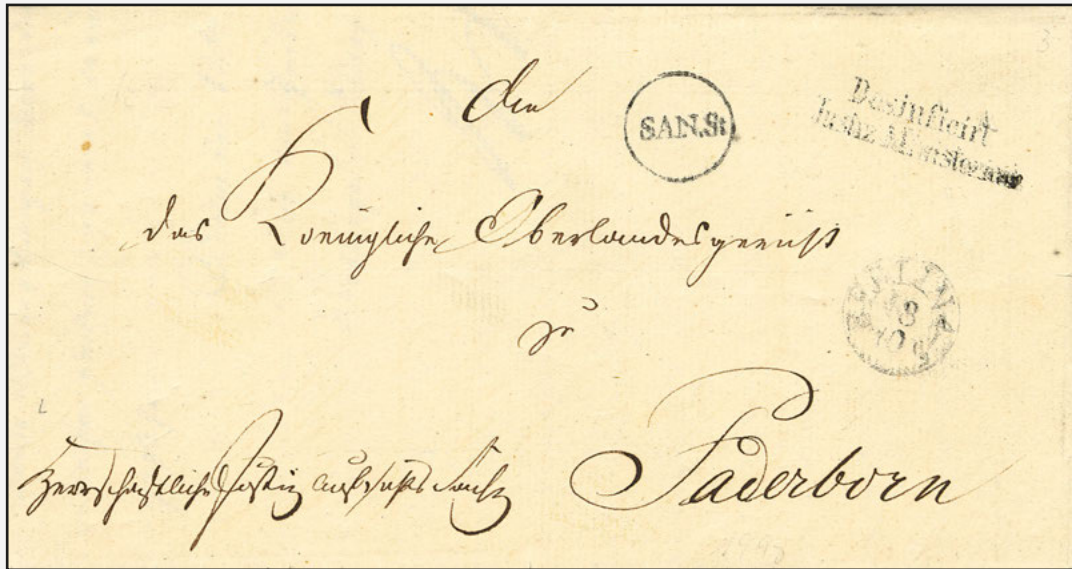 An
SAN.St.
Desinficirt
Justiz Ministerium
das Koenigliche Oberlandesgericht
BERLIN
18
10
zu
Herrschaftliche Justiz
Paderborn